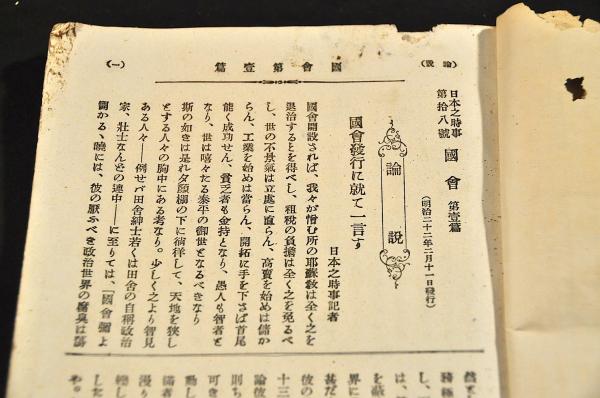 (論說)
國會第壹篇
(一)
日本之時事
第拾八號
國會 第壹篇
(明治二十二年二月十一日發行)
論說
國會發行に就て一言す
日本之時事記者
國會開設されば、我々が憎む所の耶蘇敎は全く之を
退治するとを得べし、租稅の負擔は全く之を免るべ
し、世の不景氣は立處に直らん、商賣を始めは儲か
らん、工業を始めは當らん、開拓に手を下さば首尾
能く成功せん、貧乏者も金持となり、愚人も智者と
なり、世は嘻々たる泰平の御世となるべきなり
斯の如きは是れ夕顏棚の下に彷徨して、天地を狹し
とする人々の胸中にある考なり。少しく之より智見
ある人々──例せバ田舍紳士若くは田舍の自稱政治
家、壯士なんどの連中──に至りては、「國會彌よ
開かる、曉には、彼の厭ふべき政治世界の腐臭は蕩